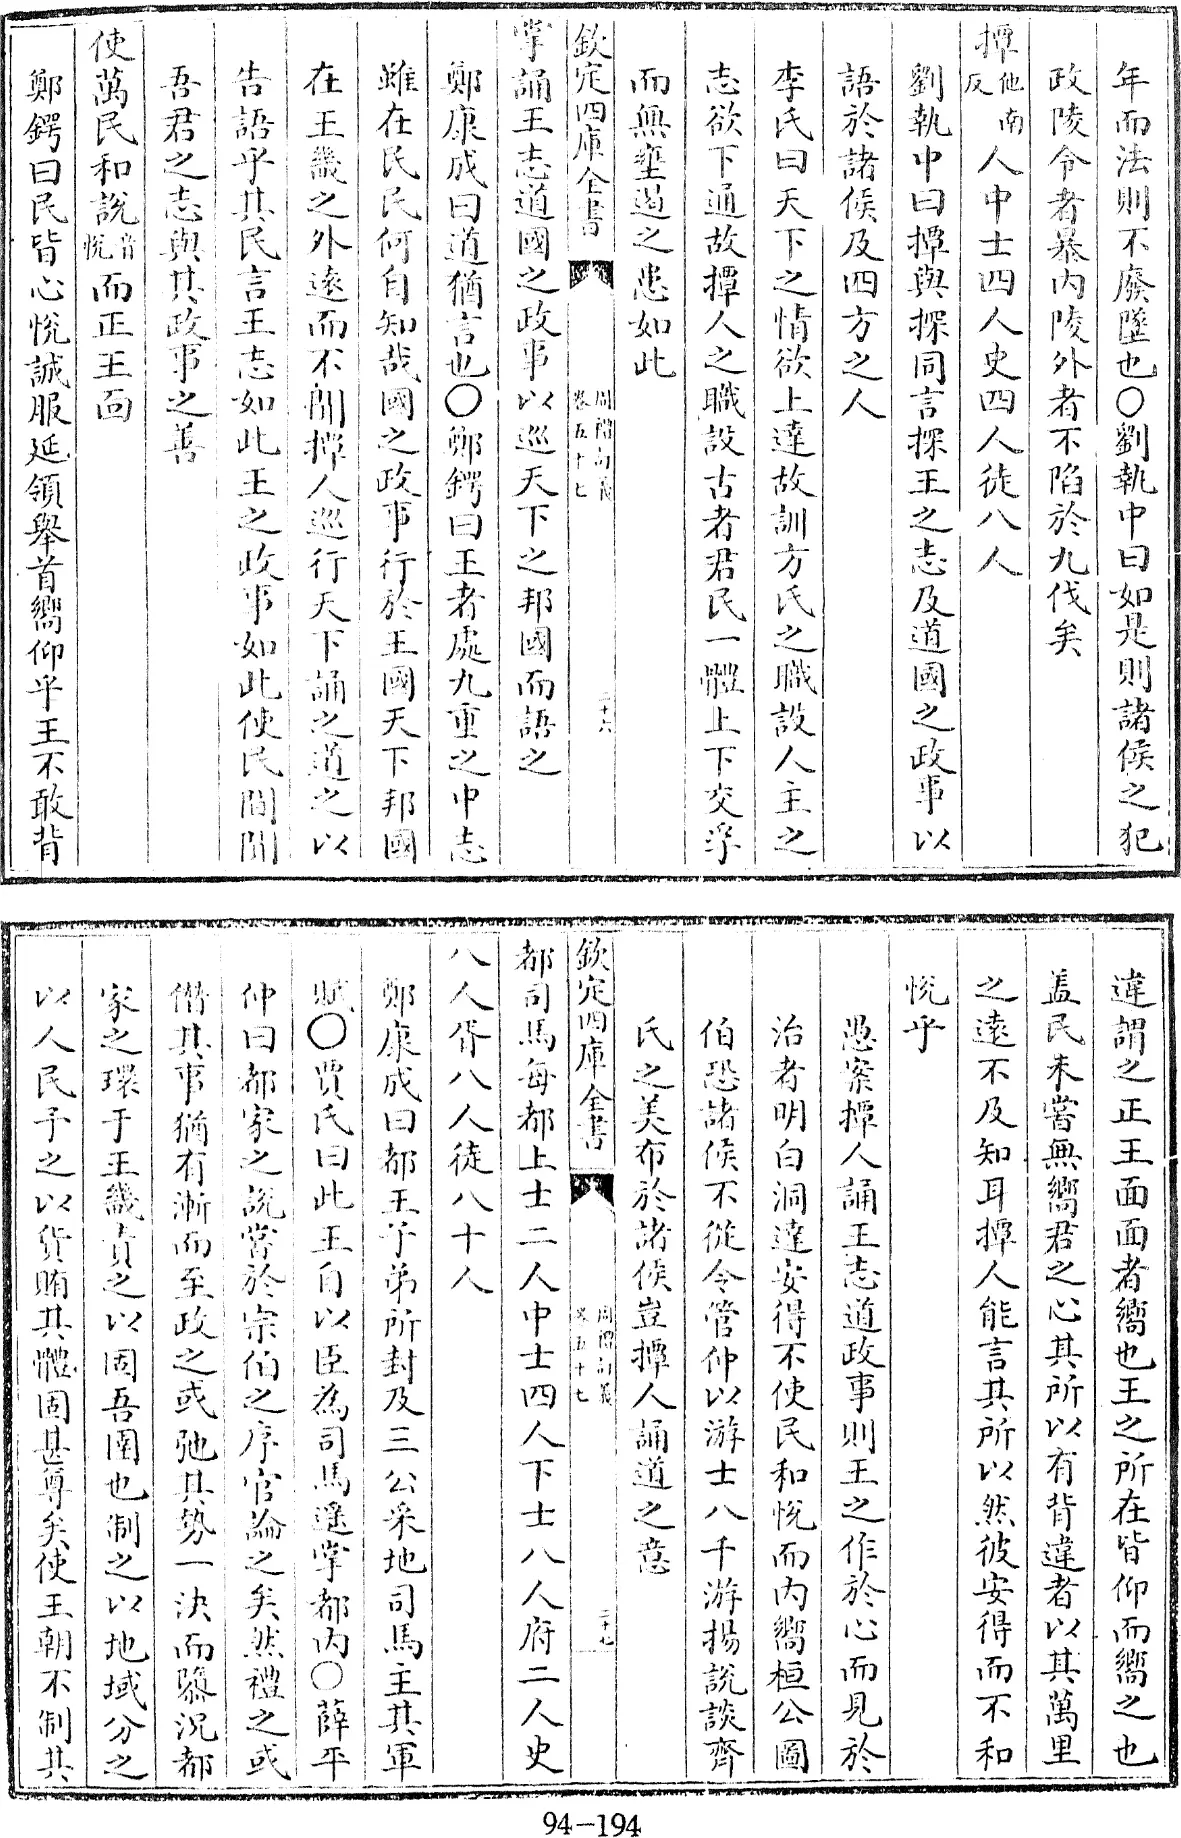 年而法則不廢墜也○劉執中曰如是則諸侯之犯
政陵令者暴内陵外者不陷於九伐矣
撢他南反人中士四人史四人徒八人
劉執中曰撢與探同言探王之志及道國之政事以
語於諸侯及四方之人
李氏曰天下之情欲上達故訓方氏之職設人主之
志欲下通故撢人之職設古者君民一體上下交孚
而無壅遏之患如此
欽定四庫全書
周禮訂義
卷五十七
二十六
掌誦王志道國之政事以巡天下之邦國而語之
鄭康成曰道猶言也○鄭鍔曰王者處九重之中志
雖在民民何自知哉國之政事行於王國天下邦國
在王畿之外遠而不聞撢人巡行天下誦之道之以
告語乎其民言王志如此王之政事如此使民間聞
吾君之志與其政事之善
使萬民和說音悦而正王面
鄭鍔曰民皆心悦誠服延領舉首嚮仰乎王不敢背
違謂之正王面面者嚮也王之所在皆仰而嚮之也
盖民未嘗無嚮君之心其所以有背違者以其萬里
之遠不及知耳撢人能言其所以然彼安得而不和
悦乎
愚案撢人誦王志道政事則王之作於心而見於
治者明白洞達安得不使民和悦而内嚮桓公圖
伯恐諸侯不從令管仲以游士八千游揚說談齊
氏之美布於諸侯豈撢人誦道之意
欽定四庫全書
周禮訂義
卷五十七
二十七
都司馬每都上士二人中士四人下士八人府二人史
八人胥八人徒八十人
鄭康成曰都王子弟所封及三公采地司馬主其軍
賦○賈氏曰此王自以臣為司馬遥掌都内○薛平
仲曰都家之説嘗於宗伯之序官論之矣然禮之或
僭其事猶有漸而至政之或弛其勢一決而隳況都
家之環于王畿責之以固吾圉也制之以地域分之
以人民予之以貨賄其體固甚尊矣使王朝不制其
94-194